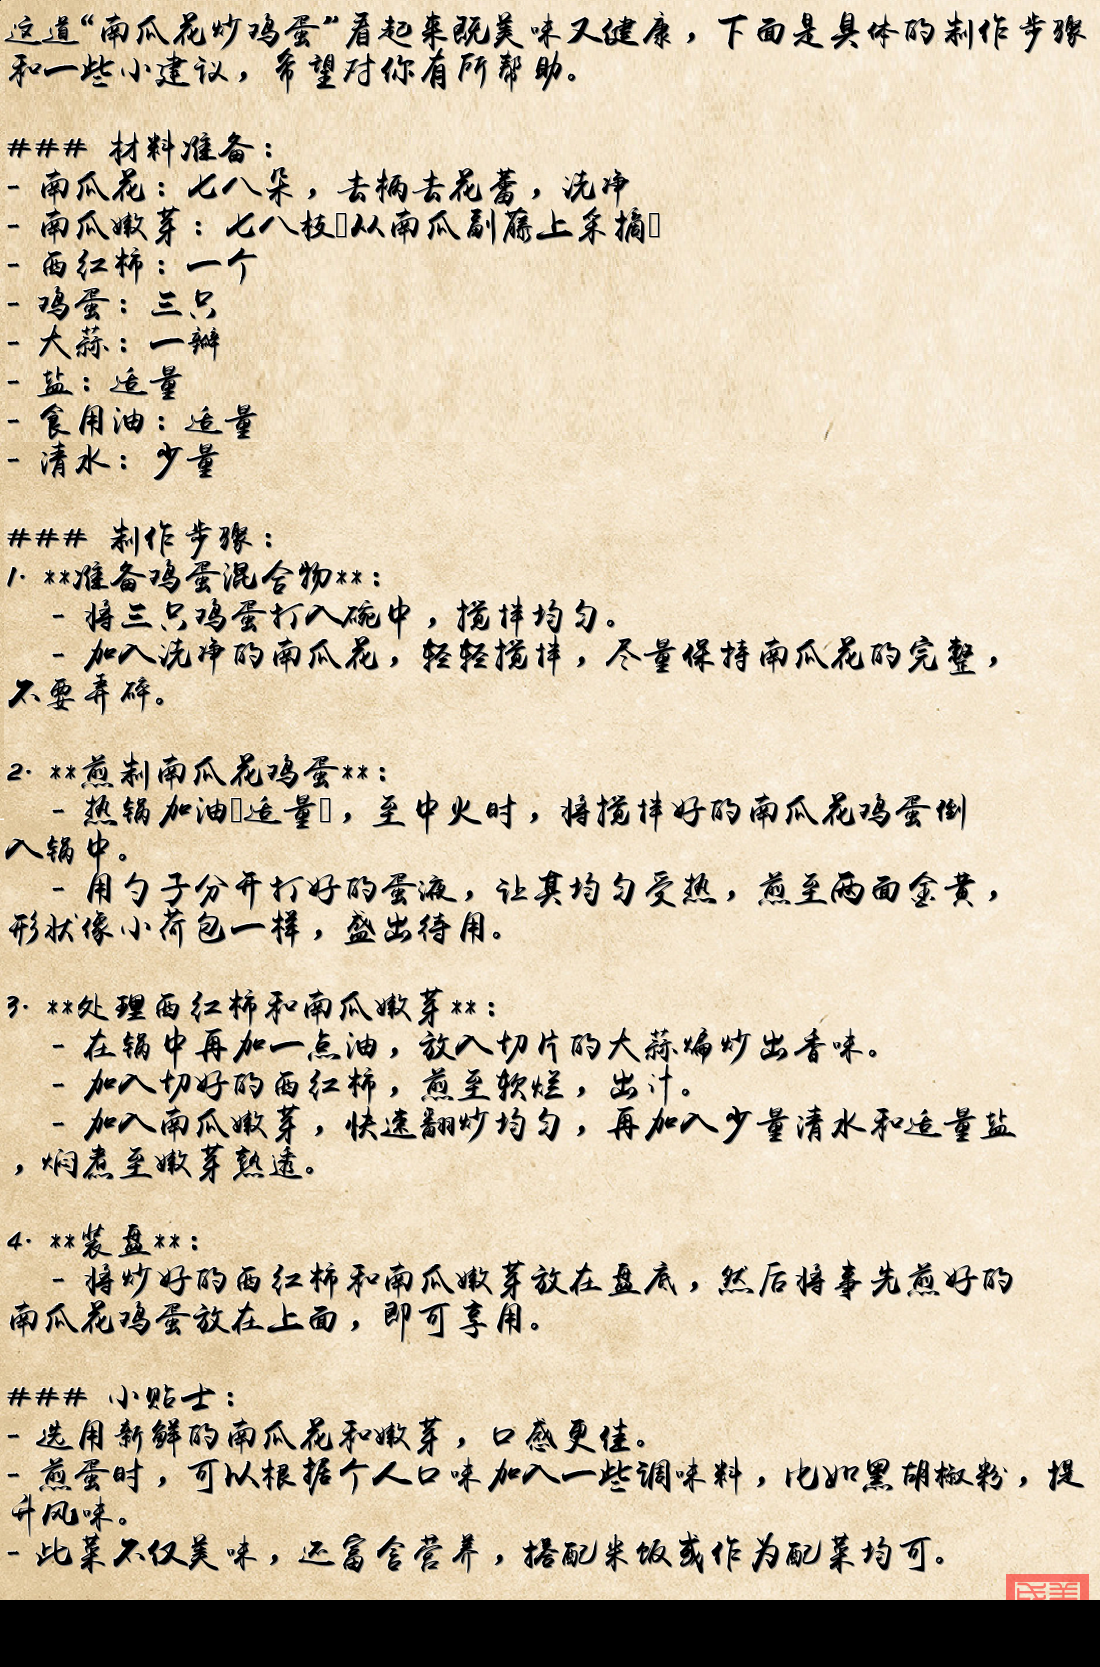 这道“南瓜花炒鸡蛋”看起来既美味又健康，下面是具体的制作步骤
和一些小建议，希望对你有所帮助。
### 材料准备：
- 南瓜花：七八朵，去柄去花蕾，洗净
- 南瓜嫩芽：七八枝▯从南瓜副藤上采摘▯
- 西红柿：一个
- 鸡蛋：三只
- 大蒜：一瓣
- 盐：适量
- 食用油：适量
- 清水：少量
### 制作步骤：
1. **准备鸡蛋混合物**：
- 将三只鸡蛋打入碗中，搅拌均匀。
- 加入洗净的南瓜花，轻轻搅拌，尽量保持南瓜花的完整，
不要弄碎。
2. **煎制南瓜花鸡蛋**：
- 热锅加油▯适量▯，至中火时，将搅拌好的南瓜花鸡蛋倒
入锅中。
- 用勺子分开打好的蛋液，让其均匀受热，煎至两面金黄，
形状像小荷包一样，盛出待用。
3. **处理西红柿和南瓜嫩芽**：
- 在锅中再加一点油，放入切片的大蒜煸炒出香味。
- 加入切好的西红柿，煎至软烂，出汁。
- 加入南瓜嫩芽，快速翻炒均匀，再加入少量清水和适量盐
，焖煮至嫩芽熟透。
4. **装盘**：
- 将炒好的西红柿和南瓜嫩芽放在盘底，然后将事先煎好的
南瓜花鸡蛋放在上面，即可享用。
### 小贴士：
- 选用新鲜的南瓜花和嫩芽，口感更佳。
- 煎蛋时，可以根据个人口味加入一些调味料，比如黑胡椒粉，提
升风味。
- 此菜不仅美味，还富含营养，搭配米饭或作为配菜均可。